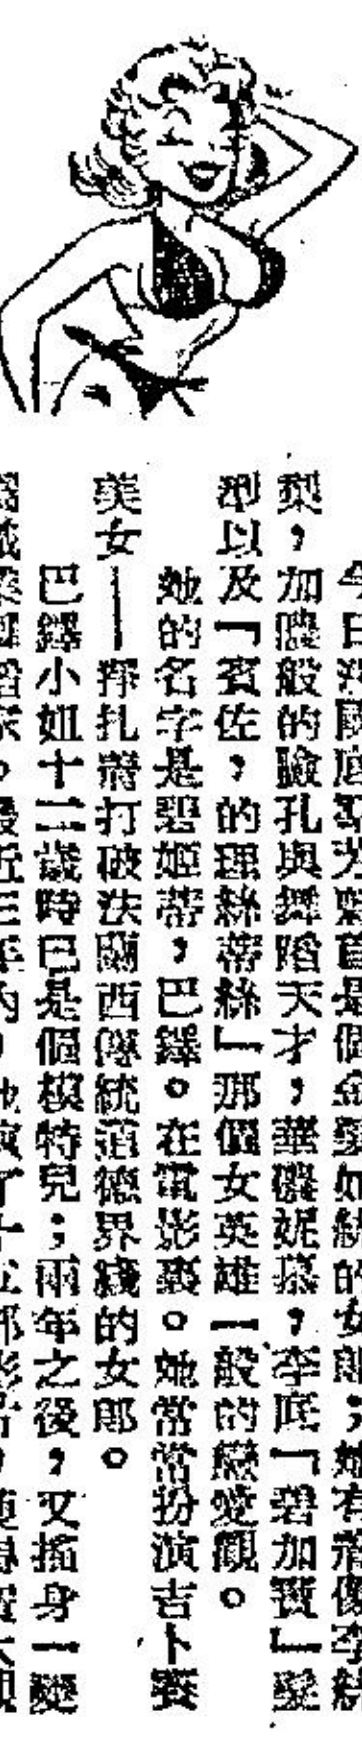 今日法國底點尤魁首是個金髮如絲的女郎，她有着像李絲
梨，加隆般的臉孔與舞蹈天才，華磯妮慕，李底「碧加賓」髮
型以及「賓佐，的理絲蒂絲」那個女英雄一般的戀愛觀。
她的名字是碧姬蒂，巴鐸。在電影裏。她常常扮演吉卜賽
美女——掙扎着打破法蘭西傳統道德界綫的女郎。
巴鐸小姐十二歲時巳是個模特兒；兩年之後，又搖身一變
最近三年內，她演了十五部影片，